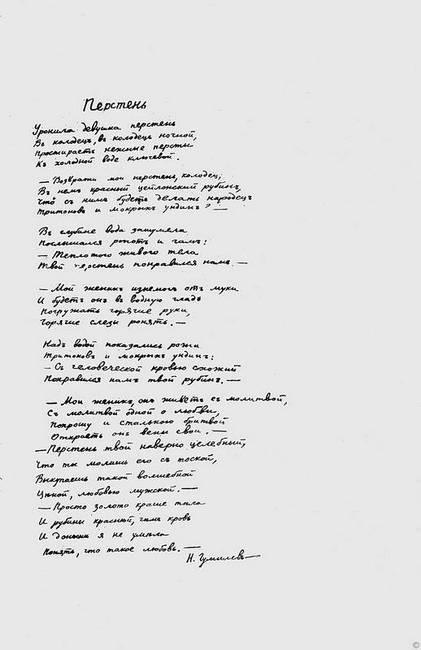 Перстень
Уронила девушка перстень
Въ колодецъ, въ колодецъ ночной,
Простираетъ нежные персты
Къ холодной воде ключевой.
— Возврати мой перстень, колодецъ,
Въ немъ красный цейлонский рубинъ,
Что съ нимъ будетъ делать народецъ
Тритоновъ и мокрыхъ ундинъ? —
Въ глубине вода зашумела
Послышался ропотъ и гамъ:
— Теплотою живого тела
Твой перстень понравился намъ. —
— Мой женихъ изнемогъ отъ муки
И будетъ онъ въ водную гладь
Погружать горячие руки,
Горячие слезы ронять. —
Надъ водой показались рожи
Тритоновъ и мокрыхъ ундинъ:
— Съ человеческой кровью схожий
Понравился намъ твой рубинъ. —
— Мой женихъ, онъ живетъ съ молитвой,
Съ молитвой одной о любви,
Попрошу и стальною бритвой
Откроетъ онъ вены свои. —
— Перстень твой наверно целебный,
Что ты молишь его съ тоской,
Выкупаешь такой волшебной
Ценой, любовью мужской. —
— Просто золото краше тела
И рубины красней, чемъ кровь
И доныне я не умела
Понять, что такое любовь. —
Н. Гумилевъ
©